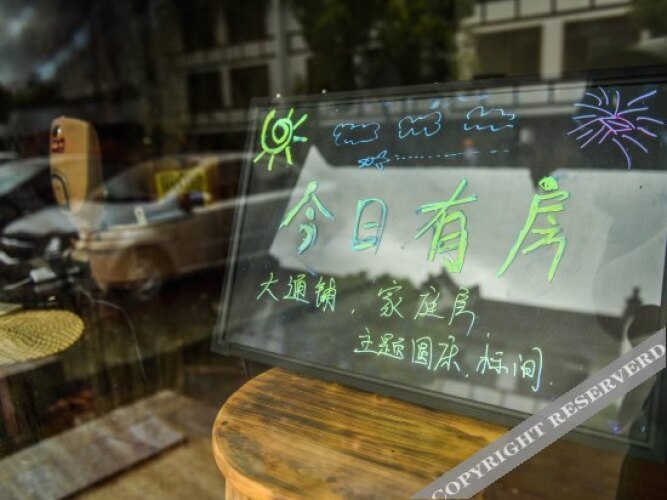 今日有房
大通铺，家庭房，
主题圆床，标间.
COPYRIGHT RESERVERD